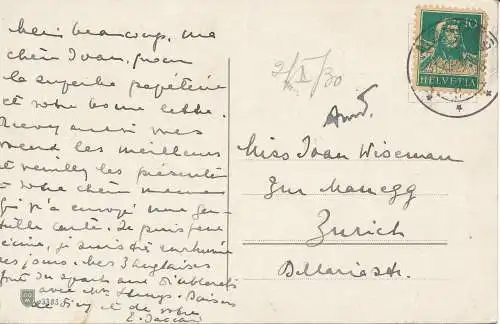 Merci beaucoup, ma
chère Joan, pour
la superbe papeterie
et votre bonne lettre.
Recevez aussi mes
vœux les meilleurs
et veuillez les présenter
à votre chère maman
qui m'a envoyé une gen-
tille carte. Je puis
je suis très
ces jours. Mes 3 anglaises
font du sport aux Diablerets
avec Mlle Baisers
de et de votre
E.
3383
2/I/30
Miss Joan Wiseman
Zur Manegg
Zurich
Bellariastr.
10
HELVETIA